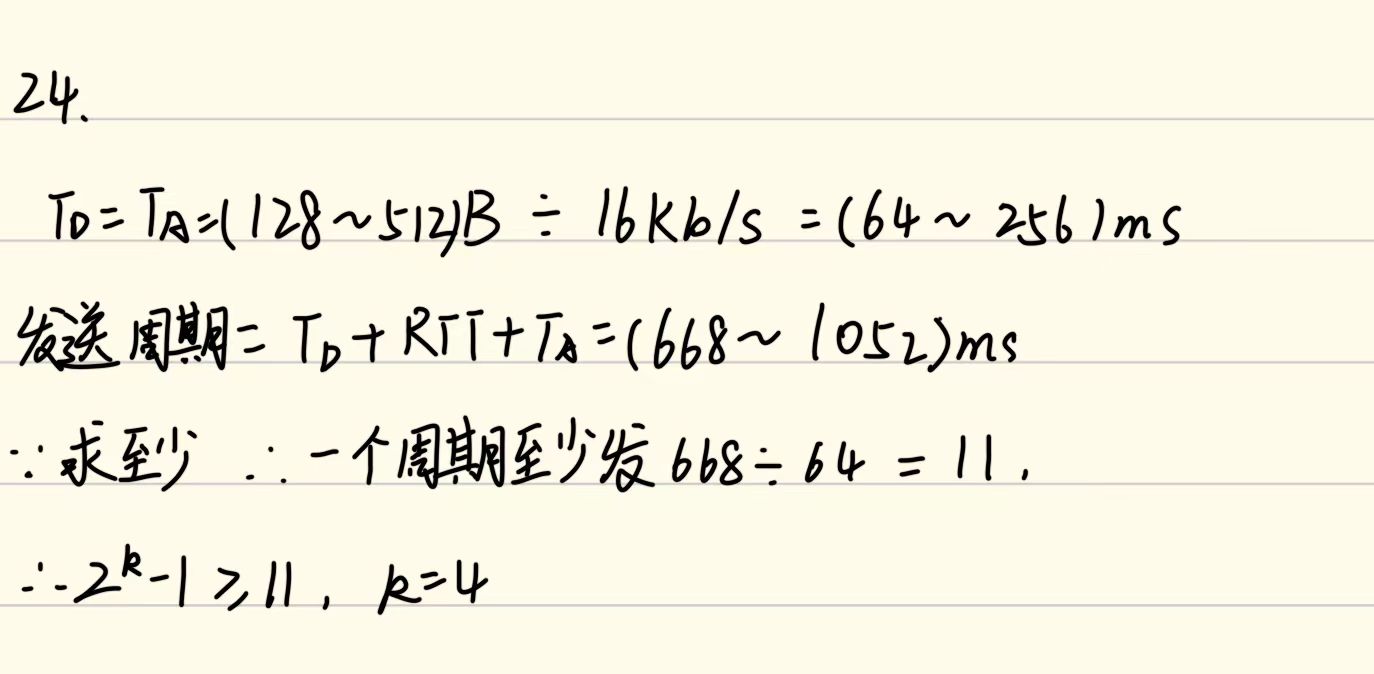 24.
T_D = T_A = (128～512)B ÷ 16Kb/s = (64～256)ms
发送周期 = T_D + RTT + T_A = (668～1052)ms
∵求至少 ∴一个周期至少发 668÷64 = 11,
∴2^k-1≥11, k=4